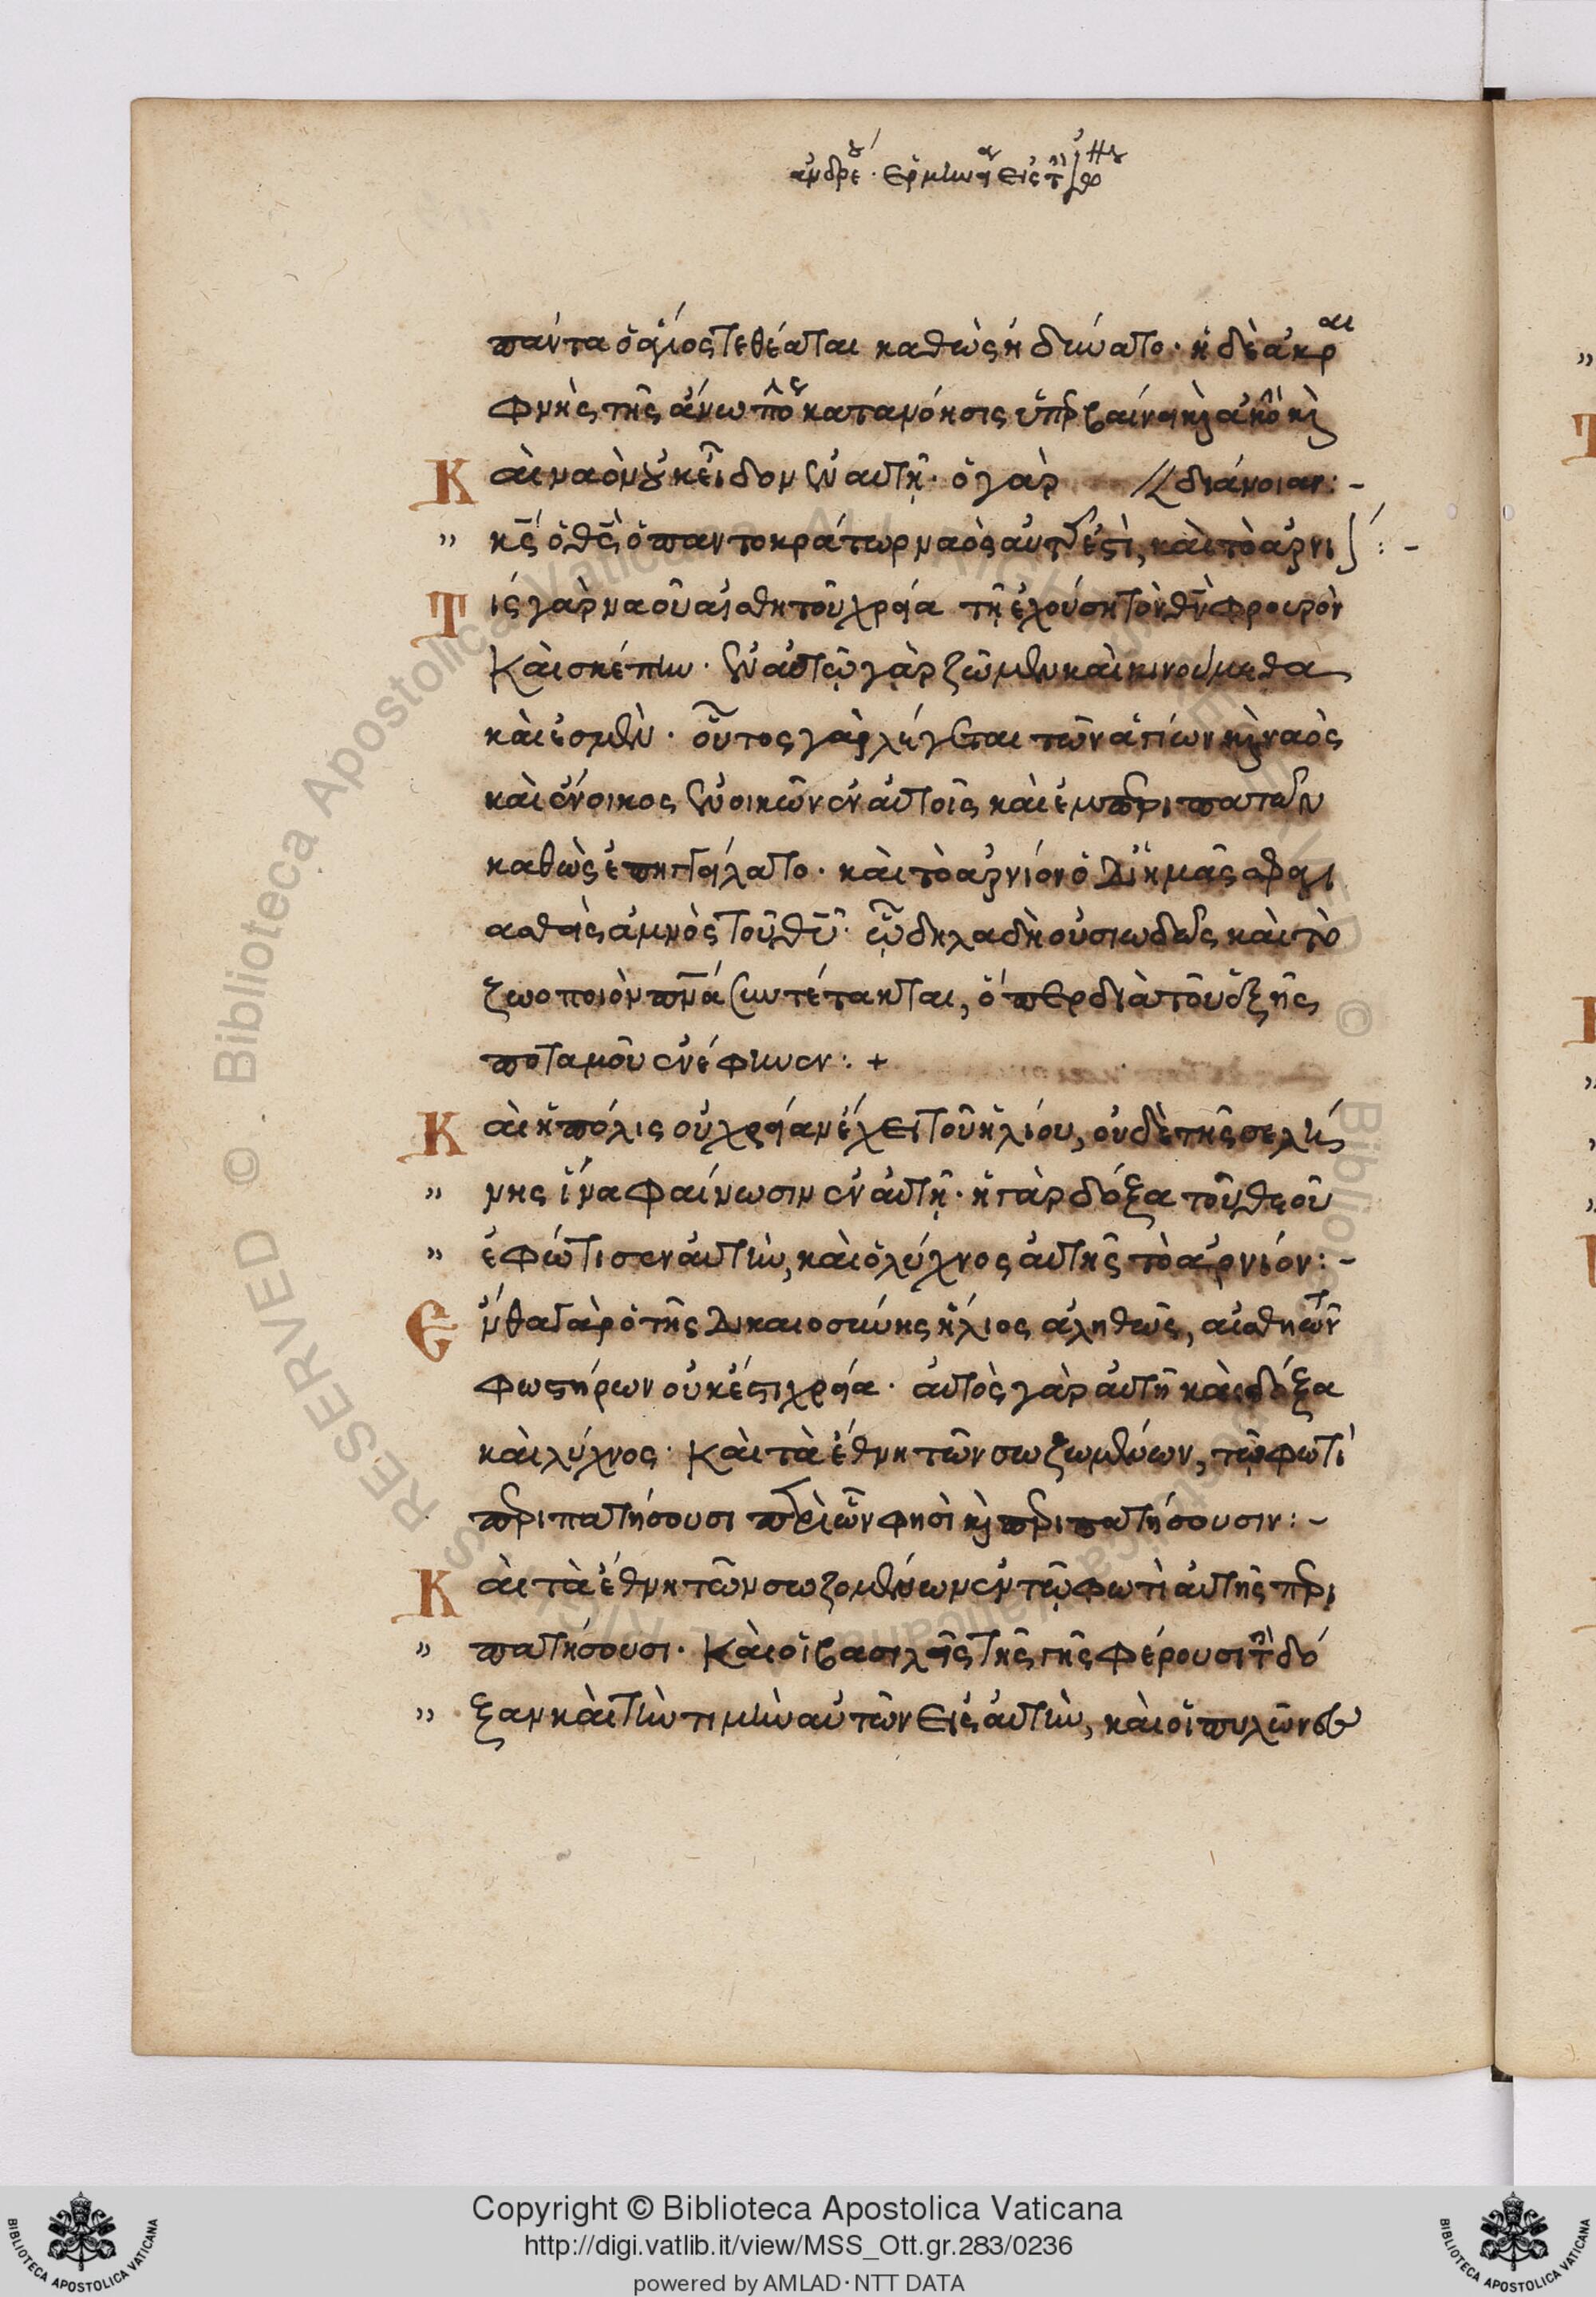 ἀνδρέου · ἑρμηνεία εἰς τὴν
πάντα ὁ ἅγιος τεθέαται καθὼς ἠδύνατο · ἡ δὲ ἀκραι
φνὴς τῆς ἄνω πόλεως κατανόησις ὑπερβαίνει καὶ ἀκοὴν καὶ
Καὶ ναὸν οὐκ εἶδον ἐν αὐτῇ · ὁ γὰρ // διάνοιαν : -
" κς ὁ θς ὁ παντοκράτωρ ναὸς αὐτῆς ἐστὶ, καὶ τὸ ἀρνίον : -
Τίς γὰρ ναοῦ αἰσθητοῦ χρεία τῇ ἐχούσῃ τὸν θν φρουρὸν
Καὶ σκέπην · ἐν αὐτῷ γὰρ ζῶμεν καὶ κινούμεθα
καὶ ἐσμὲν · οὗτος γὰρ λέγεται τῶν ἁγίων καὶ ναὸς
καὶ ἔνοικος ἐνοικῶν ἐν αὐτοῖς καὶ ἐμπεριπατῶν
καθὼς ἐπηγγείλατο · καὶ τὸ ἀρνίον ὁ δι' ἡμᾶς σφαγι
ασθεὶς ἀμνὸς τοῦ θυ · ᾧ δηλαδὴ οὐσιωδῶς καὶ τὸ
ζωοποιὸν πνα συντέτακται, ὅπερ διὰ τοῦ ἑξῆς
ποταμοῦ ἐνέφηνεν : +
Καὶ ἡ πόλις οὐ χρείαν ἔχει τοῦ ἡλίου, οὐδὲ τῆς σελή
" νης ἵνα φαίνωσιν ἐν αὐτῇ · ἡ γὰρ δόξα τοῦ θεοῦ
" ἐφώτισεν αὐτὴν, καὶ ὁ λύχνος αὐτῆς τὸ ἀρνίον : -
Ἔνθα γὰρ ὁ τῆς δικαιοσύνης ἥλιος ἀληθῶς, αἰσθητῶν
φωστήρων οὐκ ἔστι χρεία · αὐτὸς γὰρ αὐτῇ καὶ δόξα
καὶ λύχνος · Καὶ τὰ ἔθνη τῶν σωζωμένων, τῷ φωτὶ
περιπατήσουσι περὶ ὧν φησὶ καὶ περιπατήσουσιν : -
Καὶ τὰ ἔθνη τῶν σωζομένων ἐν τῷ φωτὶ αὐτῆς περι
" πατήσουσι · Καὶ οἱ βασιλεῖς τῆς γῆς φέρουσι τὴν δό
" ξαν καὶ τὴν τιμὴν αὐτῶν εἰς αὐτὴν, καὶ οἱ πυλῶνες
Copyright © Biblioteca Apostolica Vaticana
http://digi.vatlib.it/view/MSS_Ott.gr.283/0236
powered by AMLAD · NTT DATA